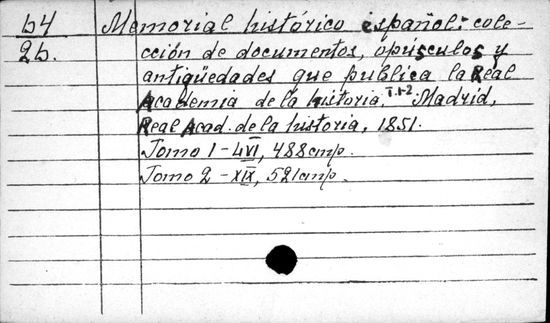 64
2b.
Memorial histórico español: cole-
cción de documentos, opúsculos y
antigüedades que publica la Real
Academia de la historia, T.1-2. Madrid,
Real Acad. de la historia, 1851.
Tomo 1 - LVI, 488 стр.
Tomo 2 - XIX, 521 стр.